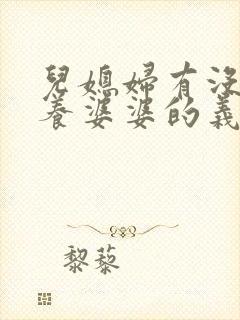 兒媳婦有沒
養婆婆的義
黎藜